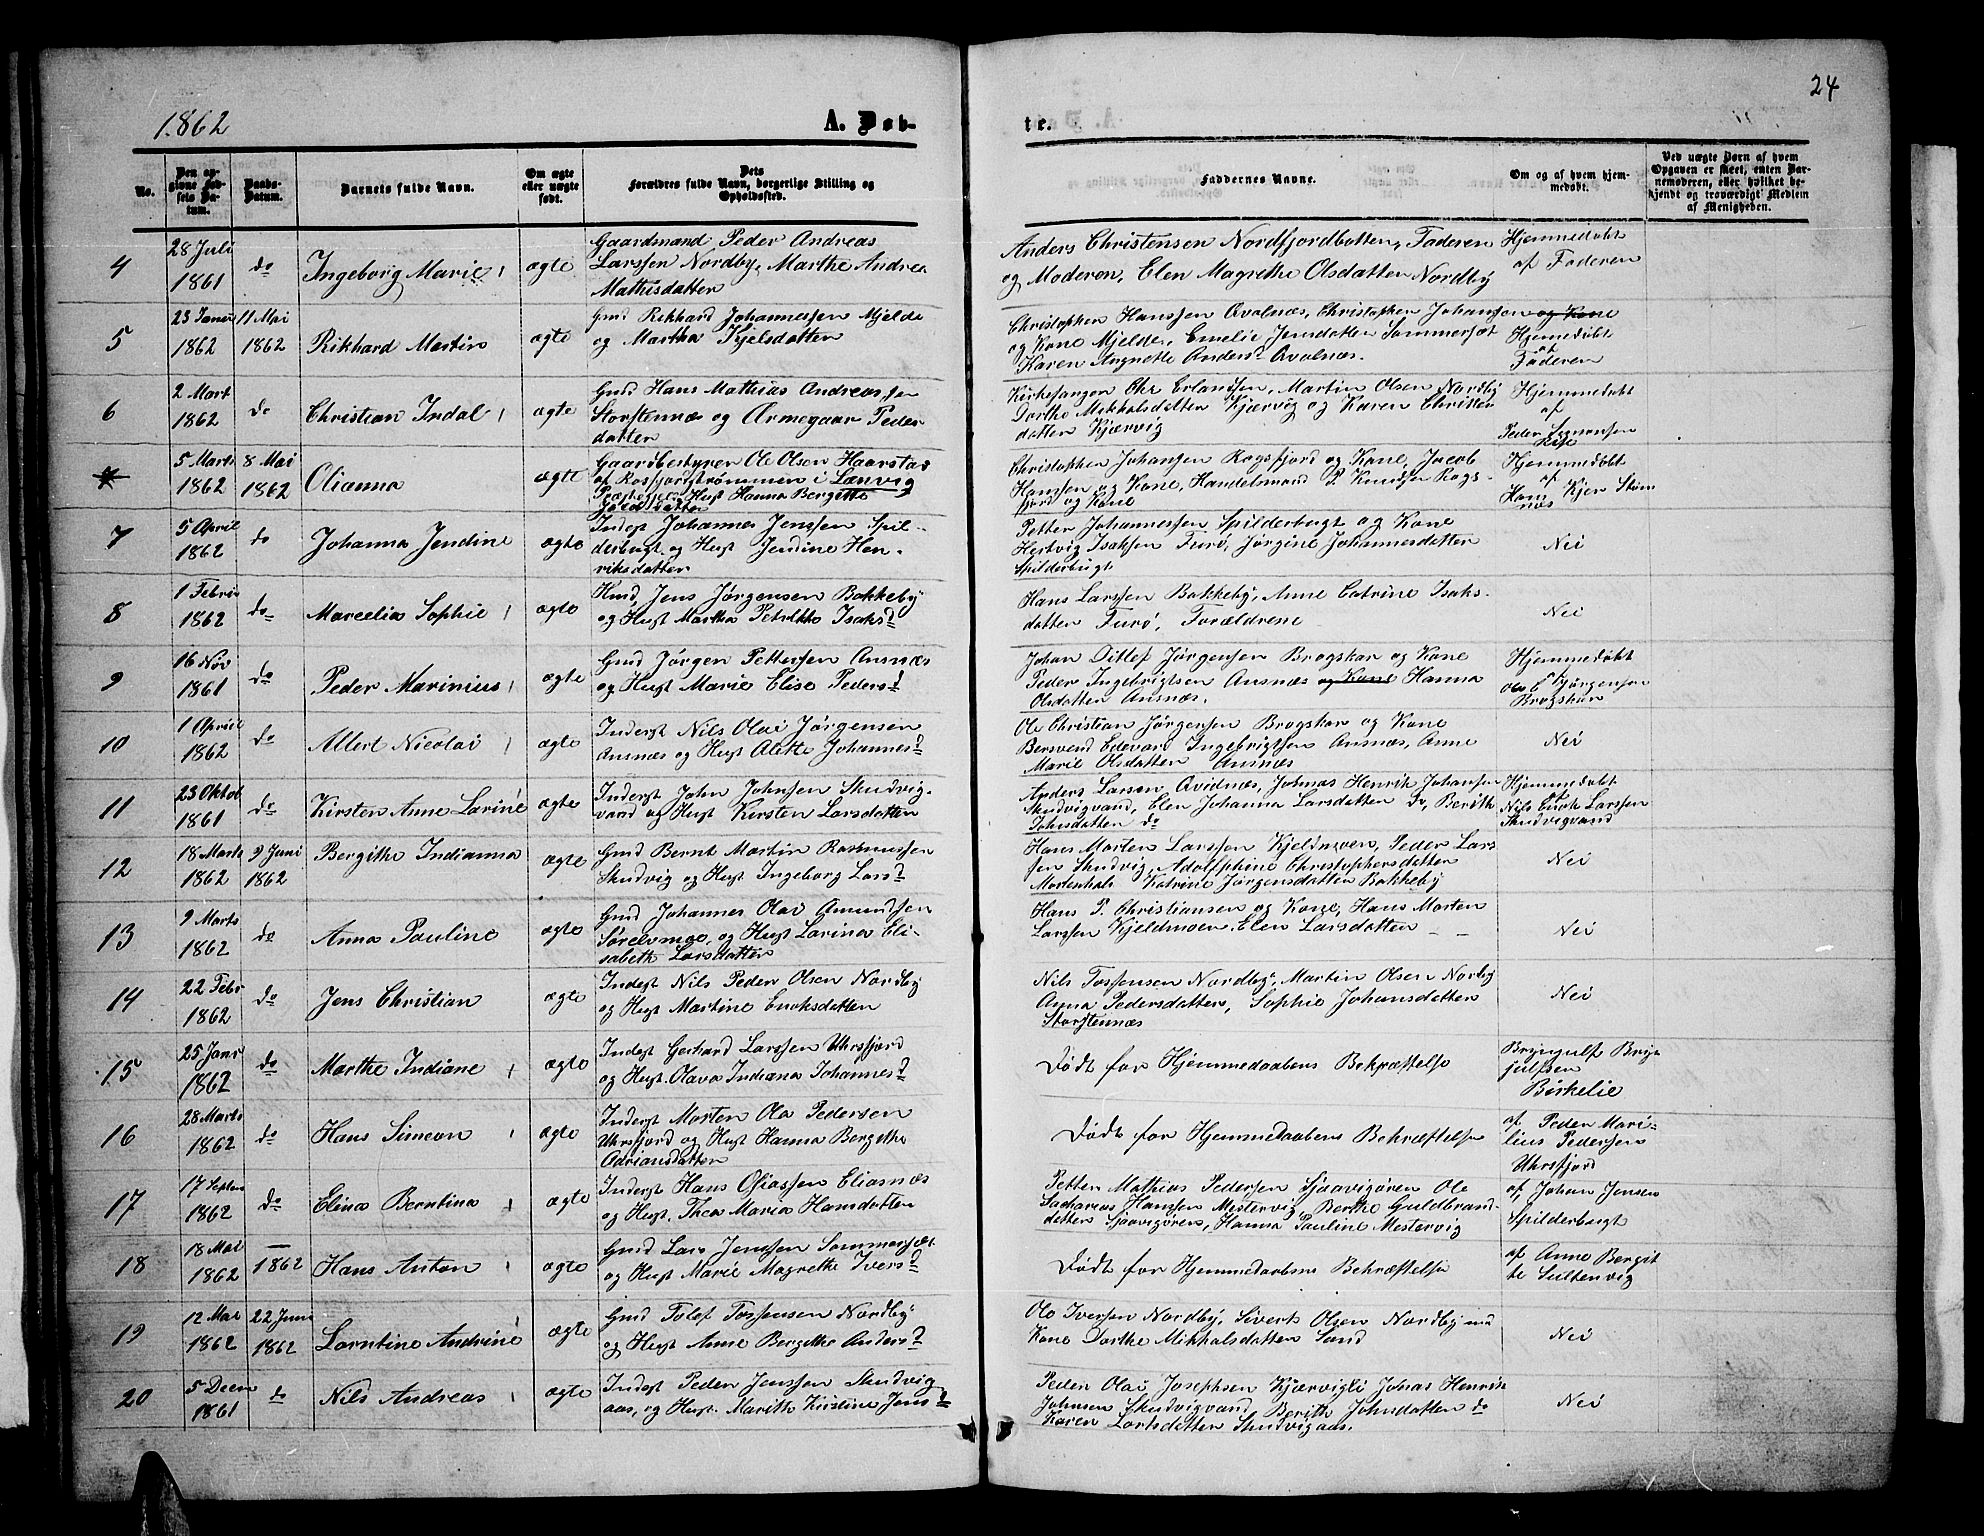 24
1862
A. Døb-
te.
No.
Den an-
givne Fød-
sels Da-
tum.
Daabs-
Datum.
Barnets fulde Navn.
Om ægte
eller uægte
født.
Dets
Forældres fulde Navn, borgerlige Stilling og
Opholdssted.
Faddernes Navne.
Om og af hvem hjem-
medøbt.
Ved uægte Børn af hvem
Opgaven er skeet, enten Bar-
nemoderen, eller hvilket be-
kjendt og troværdigt Medlem
af Menigheden.
4
28 Juli
1861
do
Ingeborg Marie
ægte
Gaardmand Peder Andreas
Larssen Nordby, Marthe Andrea
Mathisdatter
Anders Christensen Nordfjordbotten, Faderen
og Moderen, Elen Magrethe Olsdatter Nordby
Hjemmedøbt
af Faderen
5
23 Januar
1862
11 Mai
1862
Rikhard Martin
ægte
Gmd Rikhard Johannessen Mjelde
og Martha Kjelsdatter
Christopher Hanssen Avalnæs, Christopher Johansen og Kone
og Kone Mjelde, Emelie Jensdatter Sommersæt
Karen Angnette Anders Avalnæs.
Hjemmedøbt
af
Faderen
6
2 Mart
1862
do
Christian Indal
ægte
Gmd Hans Mathias Andreassen
Storstennæs og Armegaar Peder
datter
Kirkesanger Chr Erlandsen, Martin Olsen Nordby
Dorthe Mikkalsdatter Kjærvig og Karen Christen
datter Kjærvig
Hjemmedøbt
af
Peder Simonsen
5 Marts
1862
8 Mai
1862
Olianna
ægte
Gaardbestyrer Ole Olsen Haarstad
af Rosfjordstrømmen i Lænvig
Præstegj og Hust Hanna Bergitte
Jacobsdatter
Christopher Johansen Rogsfjord og Kone, Jacob
Hanssen og Kone, Handelsmand P Knudsen Rogs-
fjord og Kone
Hjemmedøbt
af
Hans Kjer Stein
næs
7
5 April
1862
do
Johanna Jendine
ægte
Inderst Johannes Jenssen Spil-
derbugt og Hust Jendine Hen-
riksdatter
Petter Johannessen Spilderbugt og Kone
Hertvig Isaksen Furø, Jørgine Johannesdatter
Spilderbugt
Nei
8
1 Febru
1862
do
Marcelia Sophie
ægte
Hmd Jens Jørgensen Bakkeby
og Hust Martha Petrikke Isaksd
Hans Larssen Bakkeby, Anne Catrine Isaks-
datter Furø, Forældrene
Nei
9
16 Nov
1861
do
Peder Marinius
ægte
Gmd Jørgen Pettersen Ansnæs
og Hust Marie Elise Pedersd
Johan Ditlef Jørgensen Brogskar og Kone
Peder Ingebrigtsen Ansnæs og Kone Hanna
Olsdatter Ansnæs.
Hjemmedøbt
af
Ole C Jørgensen
Brogskar
10
1 April
1862
do
Albert Nicolai
ægte
Inderst Nils Olai Jørgensen
Ansnæs og Hust Alette Johannesd
Ole Christian Jørgensen Brogskar og Kone
Bersvend Edevard Ingebrigtsen Ansnæs, Anne
Marie Olsdatter Ansnæs
Nei
11
23 Oktob
1861
do
Kirsten Anne Larine
ægte
Inderst John Johnsen Skudvig-
vand og Hust Kirsten Larsdatter
Anders Larsen Avidnæs, Johnas Henrik Johansen
Skudvigvand, Elen Johanna Larsdatter do, Berith
Johnsdatter do
Hjemmedøbt
af
Nils Enok Larssen
Skudvigvand
12
18 Marts
1862
9 Juni
1862
Bergithe Indianna
ægte
Gmd Bernt Martin Rasmussen
Skudvig og Hust Ingeborg Larsd
Hans Morten Larssen Kjeldmoen, Peder Lars
sen Skudvig, Adolphine Christophersdatter
Mortenhals Katrine Jørgensdatter Bakkeby
Nei
13
9 Marts
1862
do
Anna Pauline
ægte
Gmd Johannes Olai Amundsen
Sørelvmoe, og Hust Larina Eli-
sabeth Larsdatter
Hans P. Christiansen og Kone, Hans Morten
Larssen Kjeldmoen, Elen Larsdatter – –
Nei
14
22 Febr
1862
do
Jens Christian
ægte
Inderst Nils Peder Olsen Nordby
og Hust Martine Enoksdatter
Nils Tostensen Nordby, Martin Olsen Norby
Anna Pedersdatter, Sophie Johansdatter
Storstennæs
Nei
15
25 Janr
1862
do
Marthe Indiane
ægte
Inderst Gerhard Larssen Uhrsfjord
og Hust. Olava Indiana Johannesd
Død før Hjemmedaabens Bekræftelse
Bryngulf Bryn
julfsen
Birkelie
16
28 Marts
1862
do
Hans Simeon
ægte
Inderst Morten Ola Pedersen
Uhrsfjord og Hust Hanna Bergithe
Adriansdatter
Død før Hjemmedaabens Bekræftelse
af Peder Mari-
lius Pedersen
Uhrsfjord
17
17 Septem
1862
do
Elina Berntina
ægte
Inderst Hans Osiassen Eliasnæs
og Hust, Thea Maria Hansdatter
Petter Mathias Pedersen Sjaavigøren Ole
Sacharias Hanssen Mestervig, Berthe Guldbrand-
datter Sjaavigøren, Hanna Pauline Mestervig
af, Johan Jensen
Spilderbugt
18
18 Mai
1862
1862
Hans Anton
ægte
Gmd Lars Jenssen Sommersæt
og Hust Marie Magrethe Iversd
Død før Hjemmedaabens Bekræftelse
af Anne Bergit
te Sultenvig
19
12 Mai
1862
22 Juni
1862
Lorntine Andrine
ægte
Gmd Tolef Tostensen Nordby
og Hust Anne Bergithe Andersd
Ole Iversen Nordby, Siverts Olsen Nordby med
Kone Dorthe Mikkalsdatter Sand
Nei
20
5 Decem
1861
do
Nils Andreas
ægte
Inderst Peder Jenssen Skudvig
aas, og Hust. Marith Kirstine Jensd
Peder Olai Josephsen Kjærvigli Johnas Henrik
Johnsen Skudvigvand Berith Johnsdatter do
Karen Larsdatter Skudvigaas.
Nei